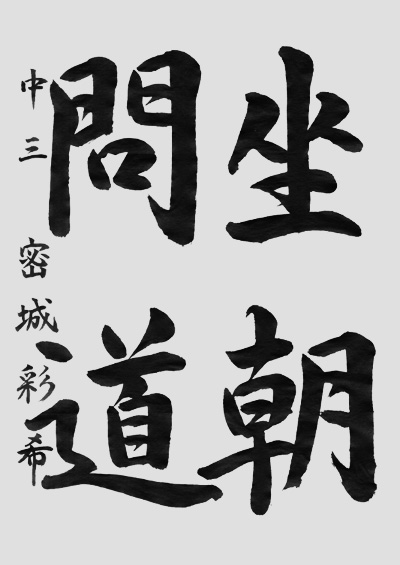 坐朝
問道
中三 密城彩希